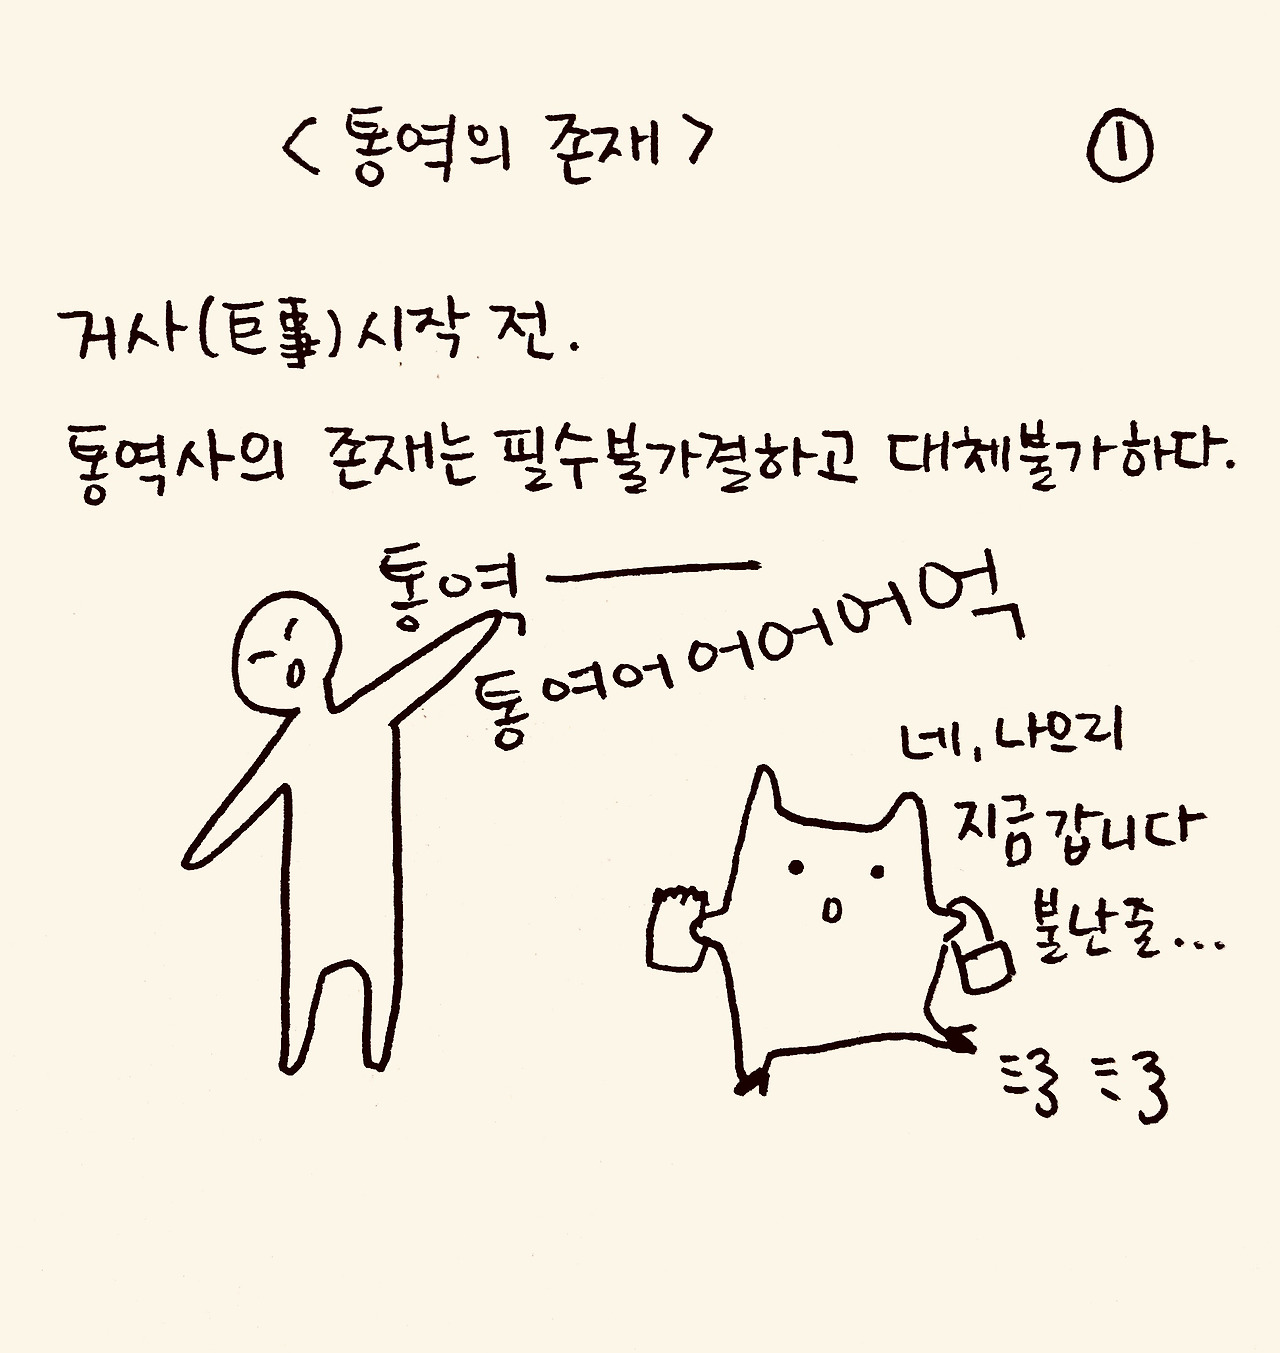 <통역의 존재>
①
거사(巨事)시작 전.
통역사의 존재는 필수불가결하고 대체불가하다.
통역ㅡ
통여어어어어억
네, 나으리
지금 갑니다
불난줄...